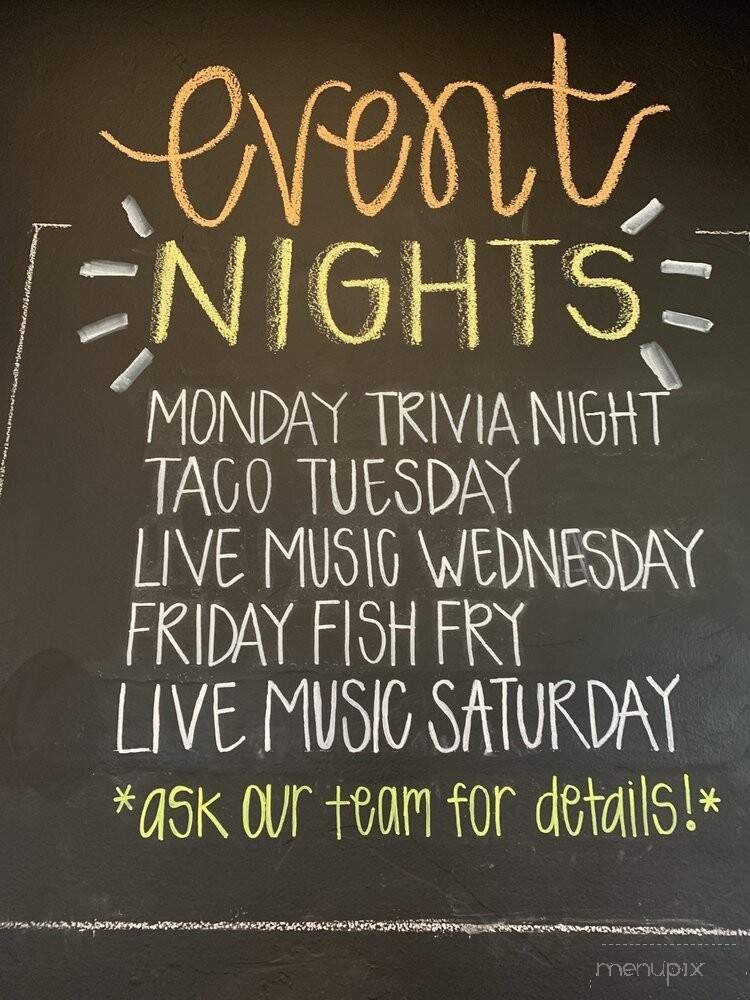 event
NIGHTS
MONDAY TRIVIA NIGHT
TACO TUESDAY
LIVE MUSIC WEDNESDAY
FRIDAY FISH FRY
LIVE MUSIC SATURDAY
*ask our team for details!*
menupix